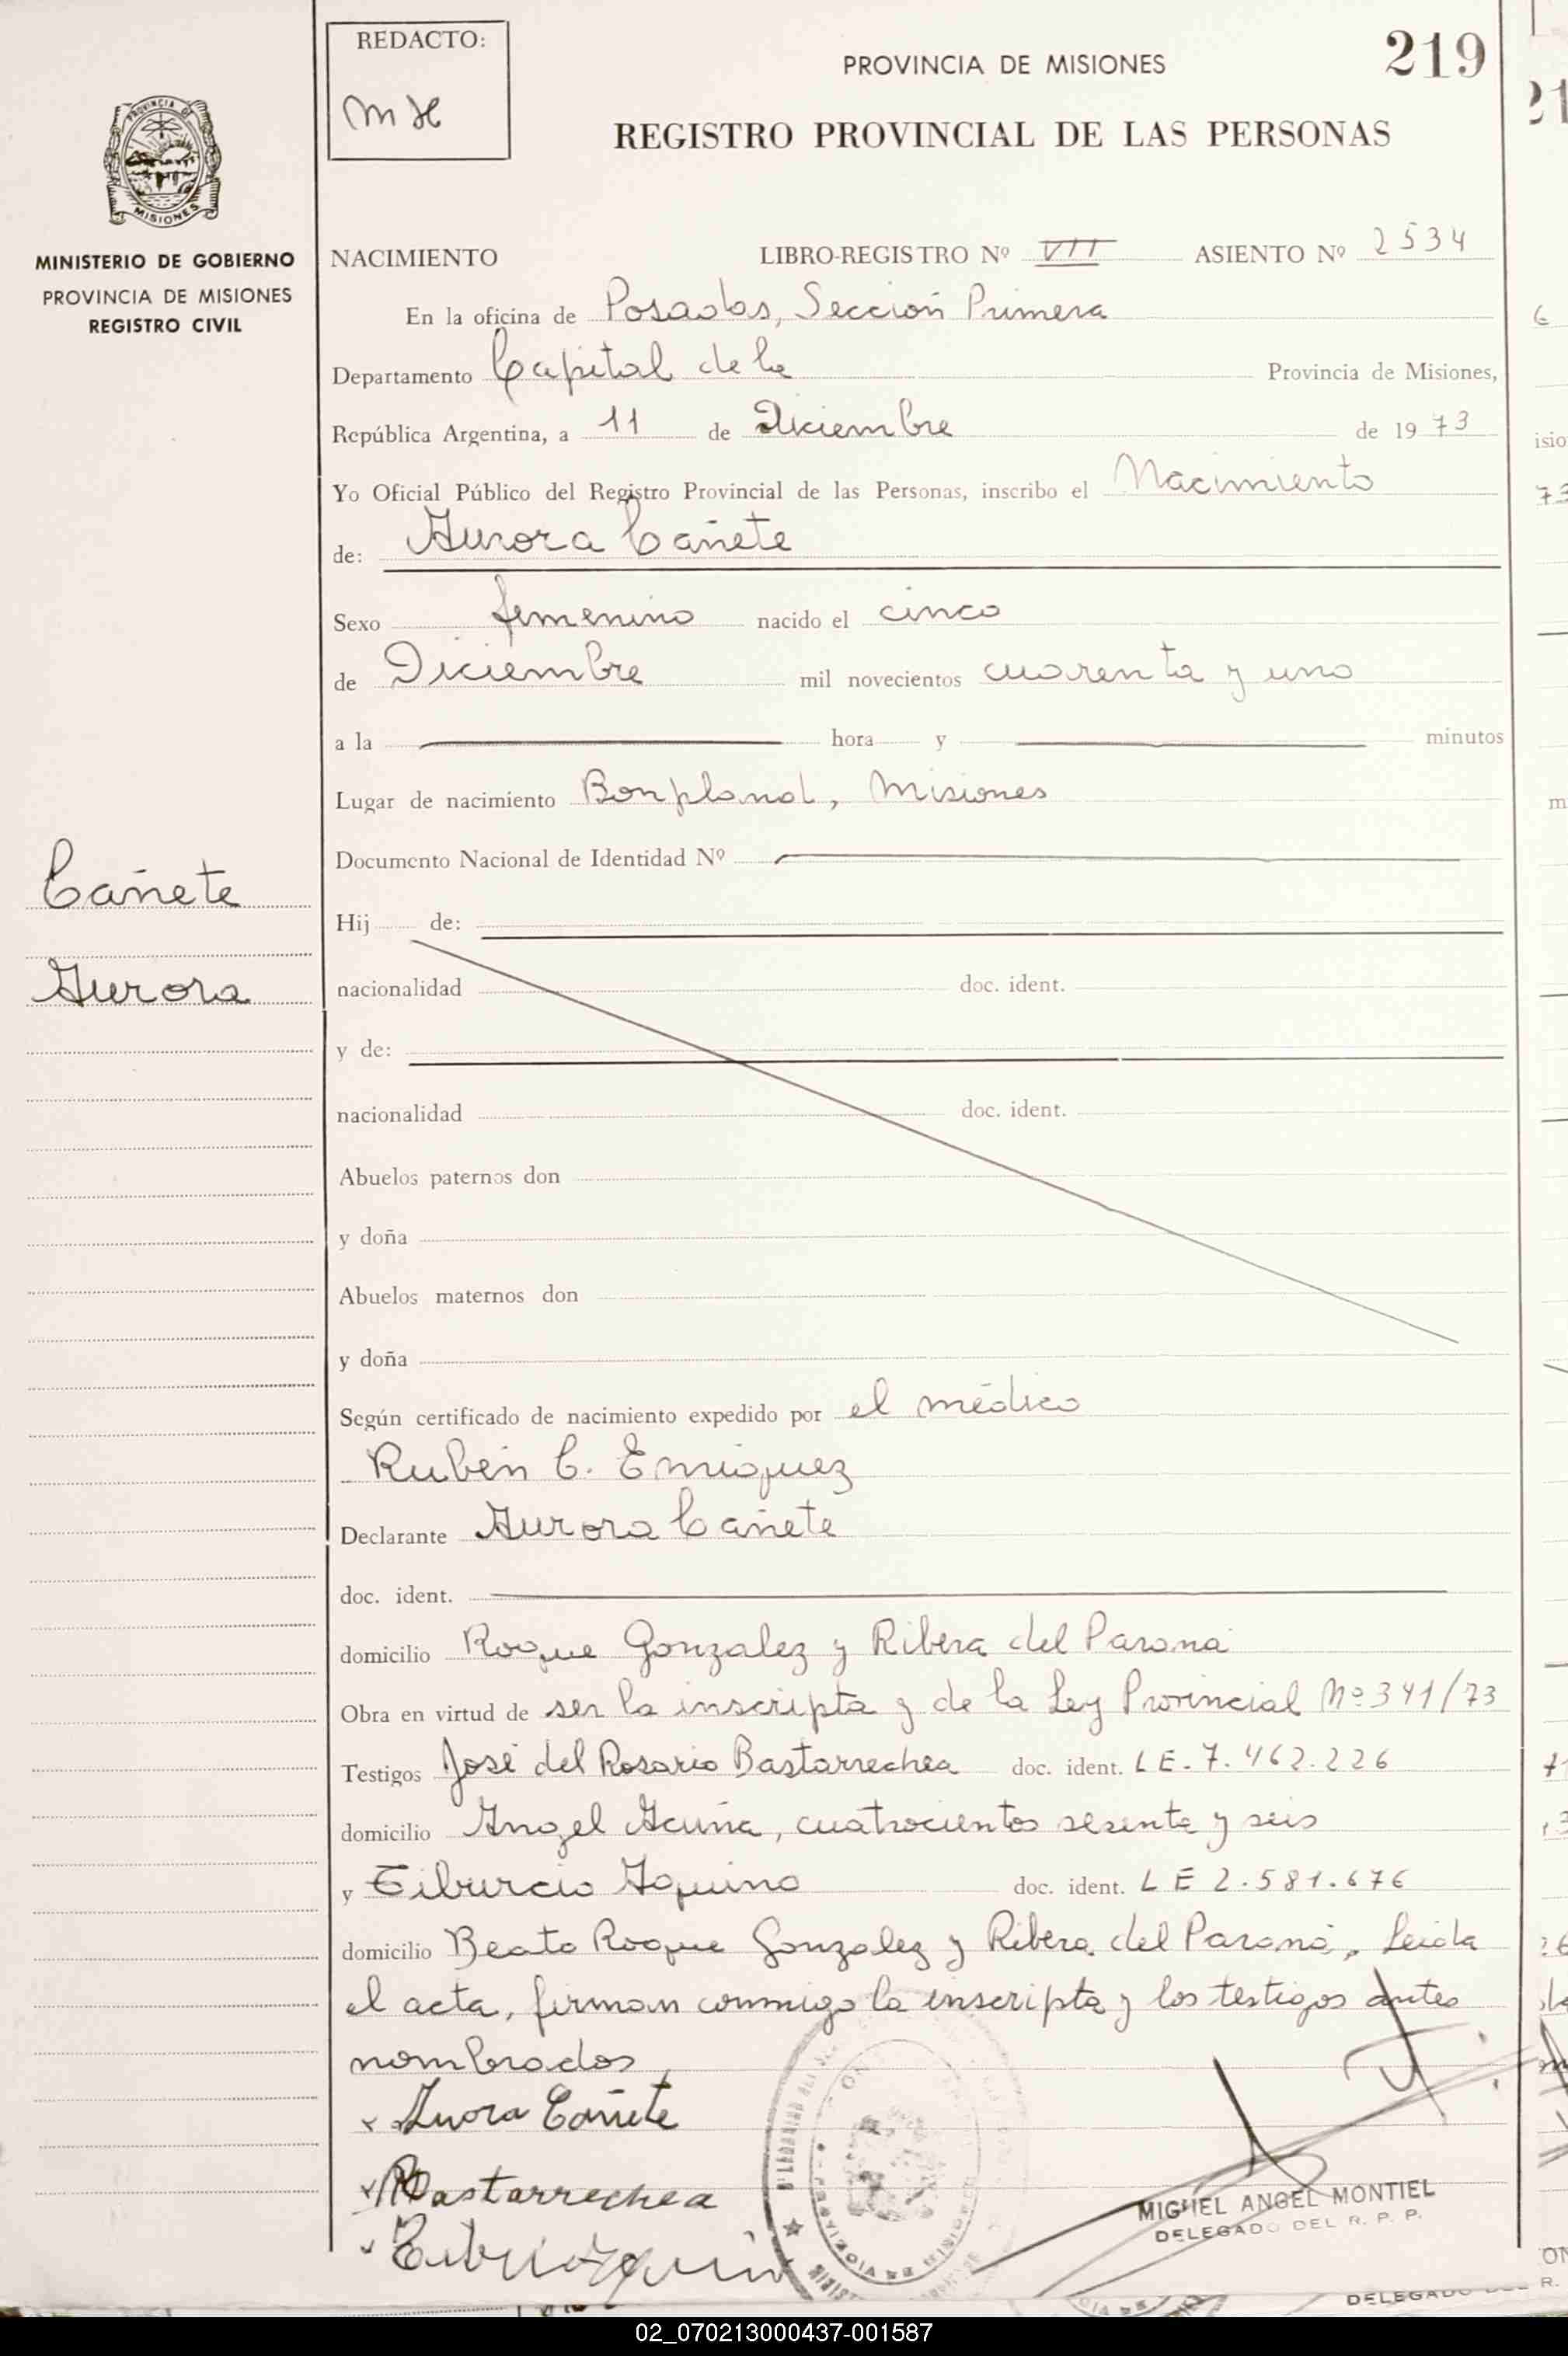 REDACTO:
PROVINCIA DE MISIONES
219
REGISTRO PROVINCIAL DE LAS PERSONAS
PROVINCIA DE
MISIONES
MINISTERIO DE GOBIERNO
PROVINCIA DE MISIONES
REGISTRO CIVIL
NACIMIENTO LIBRO-REGISTRO Nº VII ASIENTO Nº 2534
En la oficina de Posadas, Sección Primera
Departamento Capital de la Provincia de Misiones,
República Argentina, a 11 de Diciembre de 1973
Yo Oficial Público del Registro Provincial de las Personas, inscribo el Nacimiento
de: Aurora Cañete
Sexo femenino nacido el cinco
de Diciembre mil novecientos cuarenta y uno
a la hora y minutos
Lugar de nacimiento Bonpland, Misiones
Documento Nacional de Identidad Nº
Cañete
Aurora
Hij de:
nacionalidad doc. ident.
y de:
nacionalidad doc. ident.
Abuelos paternos don
y doña
Abuelos maternos don
y doña
Según certificado de nacimiento expedido por el médico
Rubén C. Enriquez
Declarante Aurora Cañete
doc. ident.
domicilio Roque Gonzalez y Ribera del Paraná
Obra en virtud de ser la inscripta y de la Ley Provincial Nº 341/73
Testigos José del Rosario Bastarrechea doc. ident. LE. 7.462.226
domicilio Angel Acuña, cuatrocientos sesenta y seis
y Tiburcio Aquino doc. ident. LE 2.581.676
domicilio Beato Roque Gonzalez y Ribera del Paraná, Leída
el acta, firman conmigo la inscripta y los testigos antes
nombrados
x Aurora Cañete
x Bastarrechea
MIGUEL ANGEL MONTIEL
DELEGADO DEL R. P. P.
02_070213000437-001587